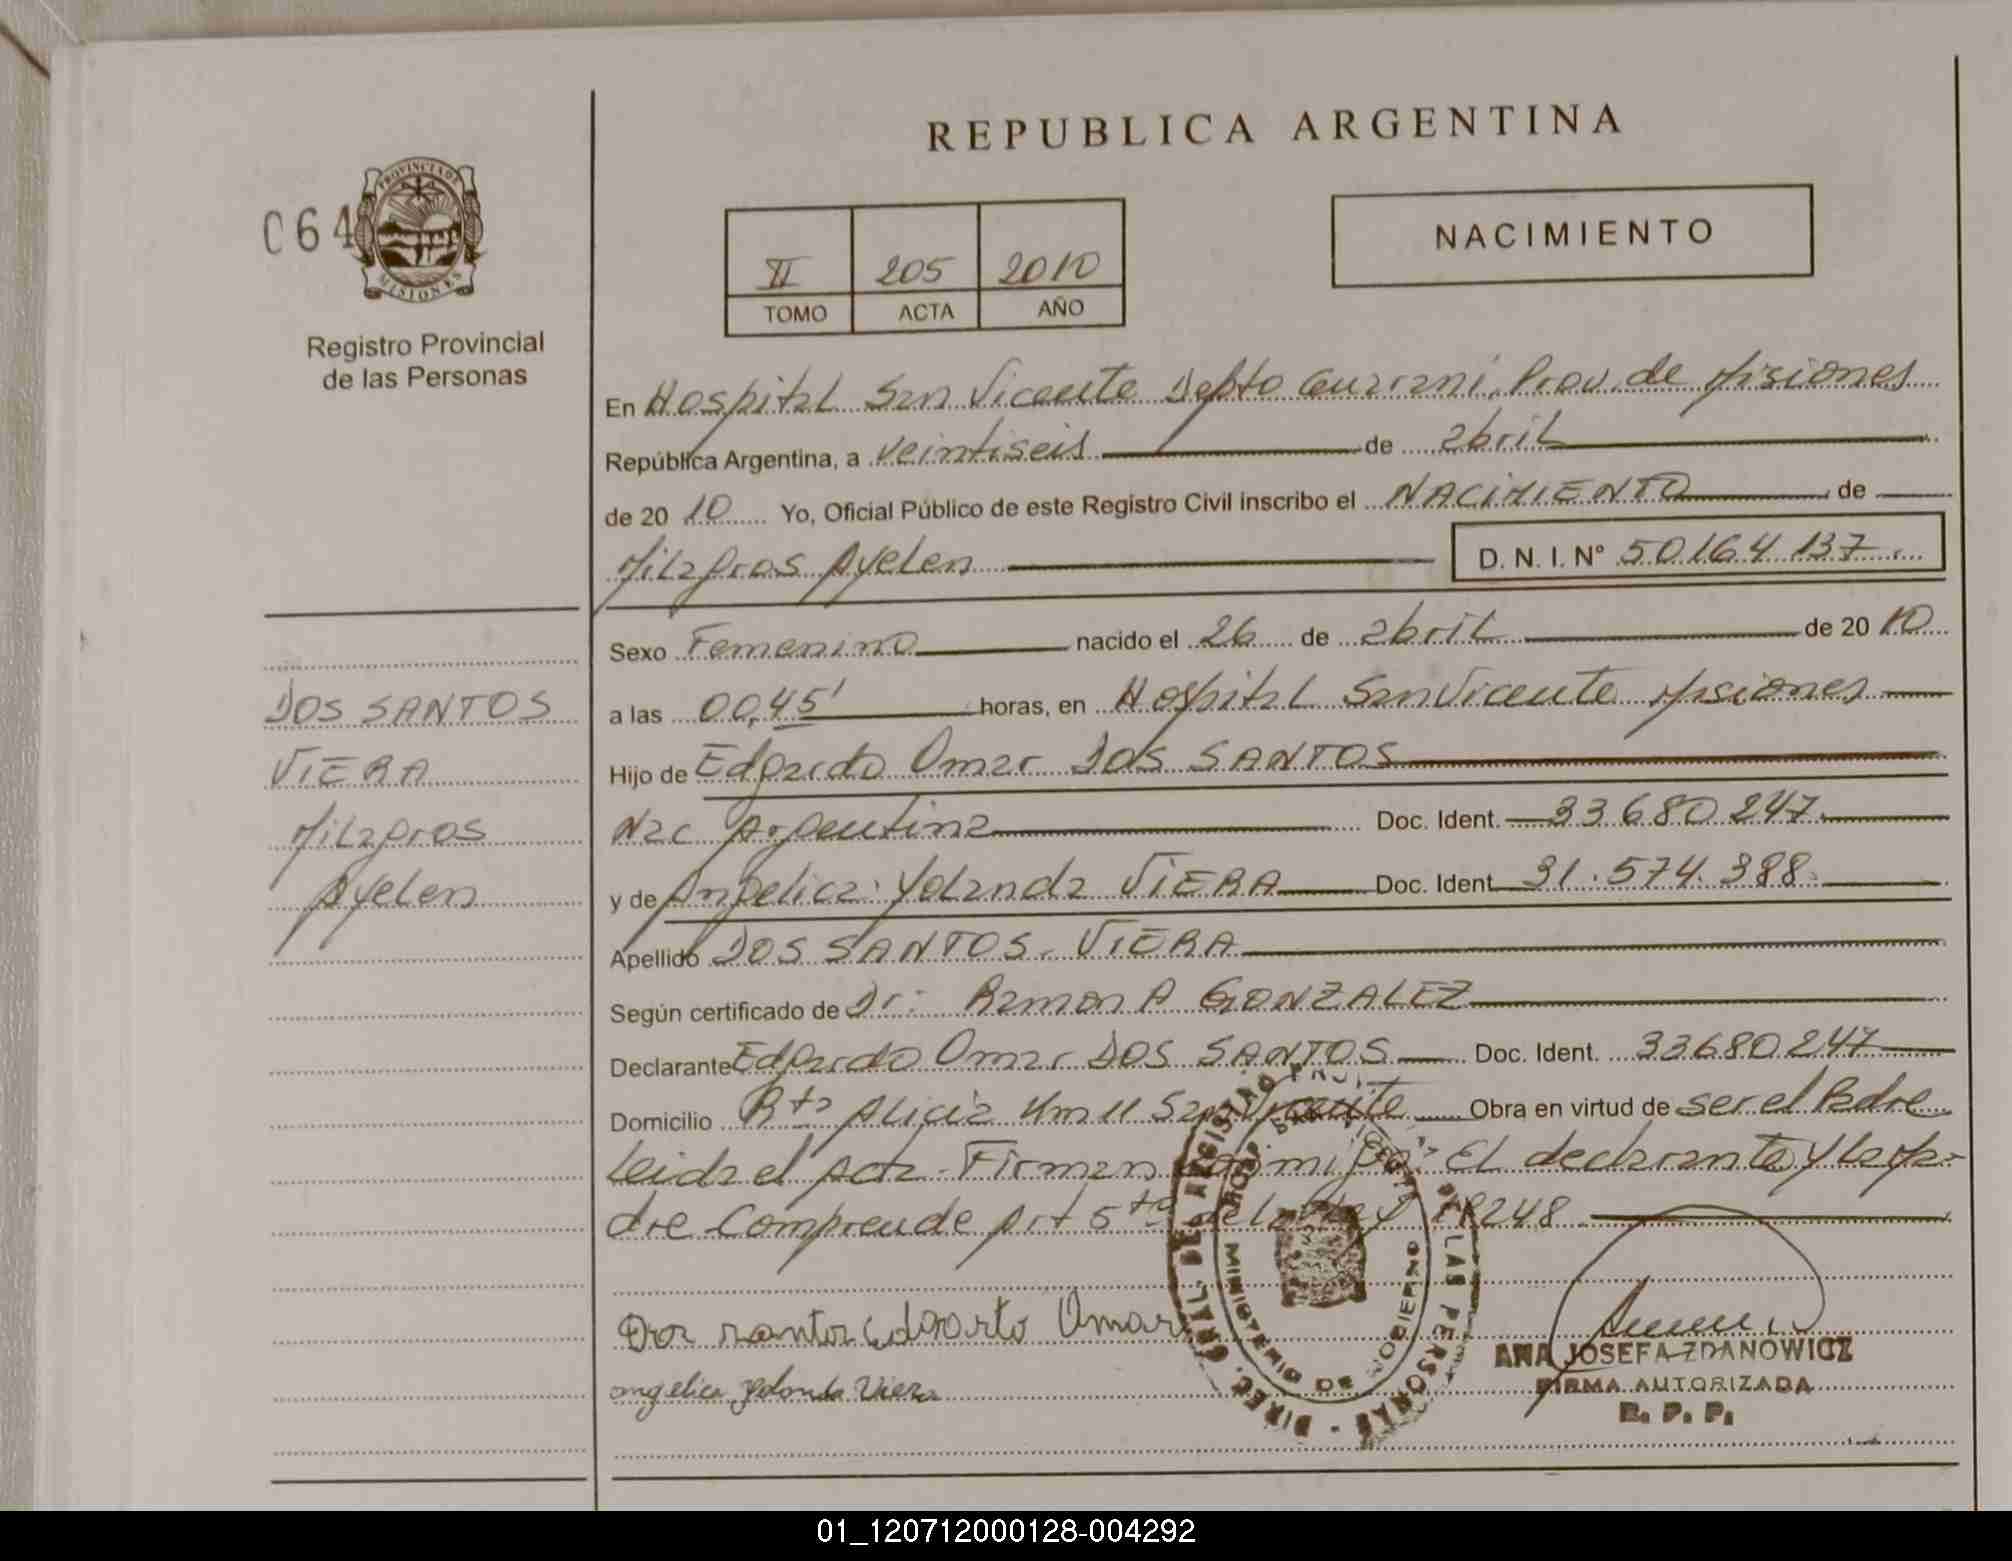 REPUBLICA ARGENTINA
064
PROVINCIA DE
MISIONES
Registro Provincial
de las Personas
II 205 2010
TOMO ACTA AÑO
NACIMIENTO
En Hospital San Vicente Depto Guarani, Prov. de Misiones
República Argentina, a veintiseis de abril
de 20 10 Yo, Oficial Público de este Registro Civil inscribo el NACIMIENTO de
Milagros Ayelen D. N. I. N° 50164137
Sexo Femenino nacido el 26 de abril de 20 10
a las 00,45' horas, en Hospital San Vicente Misiones
Hijo de Edgardo Omar DOS SANTOS
Nac Argentina Doc. Ident. 33680247
y de Angelica Yolanda VIERA Doc. Ident 31.574.388
Apellido DOS SANTOS. VIERA
Según certificado de Dr: Ramon A GONZALEZ
Declarante Edgardo Omar DOS SANTOS Doc. Ident. 33680247
Domicilio Rta Alicia Km 11 San Vicente Obra en virtud de ser el Padre
Leida el Acta. Firman conmigo: El declarante y la Ma-
dre Comprende Art 5to de la Ley 18248
DOS SANTOS
VIERA
Milagros
Ayelen
Dos santos Edgarto Omar
angelica yolanda Viera
DIREC. GRAL. DEL REGISTRO PROV. DE LAS PERSONAS
MINISTERIO DE GOBIERNO
ANA JOSEFA ZDANOWICZ
FIRMA AUTORIZADA
R. P. P.
01_120712000128-004292